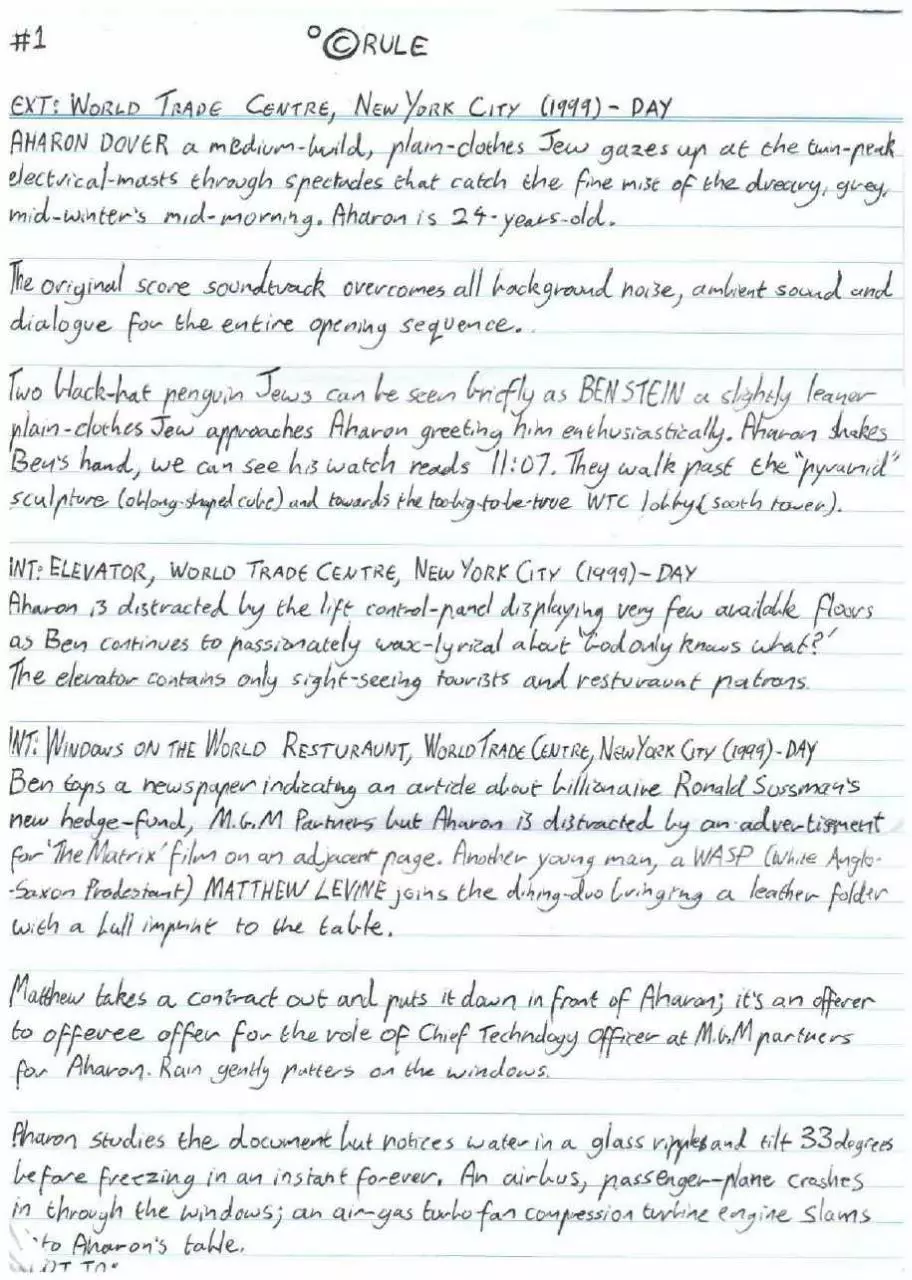 #1 °©RULE
EXT: WORLD TRADE CENTRE, NEW YORK CITY (1999) - DAY
AHARON DOVER a medium-build, plain-clothes Jew gazes up at the twin-peak
electrical-masts through spectacles that catch the fine mist of the dreary, grey,
mid-winter's mid-morning. Aharon is 24-years-old.
The original score soundtrack overcomes all background noise, ambient sound and
dialogue for the entire opening sequence..
Two black-hat penguin Jews can be seen briefly as BEN STEIN a slightly leaner
plain-clothes Jew approaches Aharon greeting him enthusiastically. Aharon shakes
Ben's hand, we can see his watch reads 11:07. They walk past the "pyramid"
sculpture (oblong-shaped cube) and towards the too-big-to-be-true WTC lobby (south tower).
INT: ELEVATOR, WORLD TRADE CENTRE, NEW YORK CITY (1999) - DAY
Aharon is distracted by the lift control-panel displaying very few available floors
as Ben continues to passionately wax-lyrical about 'God only knows what?'
The elevator contains only sight-seeing tourists and resturaunt patrons.
INT: WINDOWS ON THE WORLD RESTURAUNT, WORLD TRADE CENTRE, NEW YORK CITY (1999) - DAY
Ben taps a newspaper indicating an article about billionaire Ronald Sussman's
new hedge-fund, M.G.M Partners but Aharon is distracted by an advertisment
for 'The Matrix' film on an adjacent page. Another young man, a WASP (White Anglo-
-Saxon Prodestant) MATTHEW LEVINE joins the dining-duo bringing a leather folder
with a bull imprint to the table.
Matthew takes a contract out and puts it down in front of Aharon; it's an offerer
to offeree offer for the role of Chief Technology Officer at M.G.M partners
for Aharon. Rain gently patters on the windows.
Aharon studies the document but notices water in a glass ripples and tilt 33 degrees
before freezing in an instant forever. An airbus, passenger-plane crashes
in through the windows; an air-gas turbo fan compression turbine engine slams
to Aharon's table.